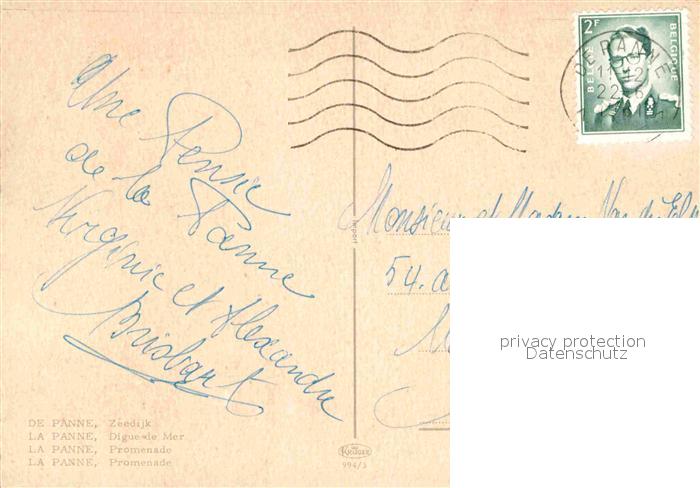 Une Pensée
de la Panne
Virginie et Alexandre
Brisbart
Monsieur et Madame Van de
54. a
DE PANNE, Zeedijk
LA PANNE, Digue de Mer
LA PANNE, Promenade
LA PANNE, Promenade
Import
KRÜGER
994/3
2F
BELGIE BELGIQUE
DE PANNE
22
privacy protection
Datenschutz